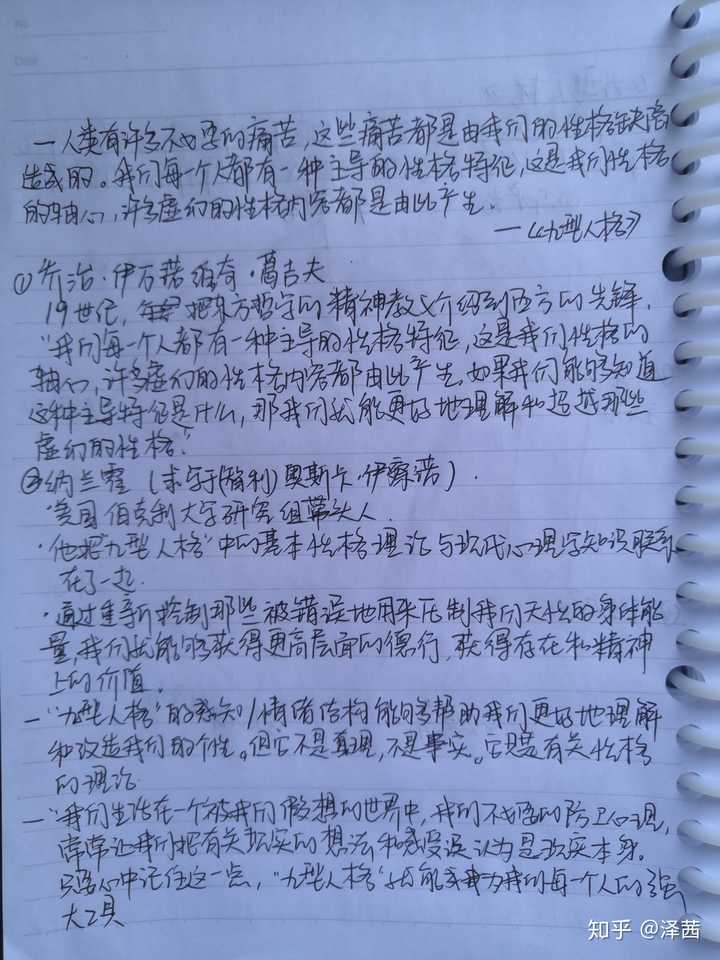 No
Date
一人类有许多不必要的痛苦,这些痛苦都是由我们的性格缺陷
造成的。我们每一个人都有一种主导的性格特征,这是我们性格
的轴心,许多虚幻的性格内容都是由此产生.
—《九型人格》
①乔治·伊万诺维奇·葛吉夫
19世纪, 把东方哲学的精神教义介绍到西方的先锋.
“我们每一个人都有一种主导的性格特征,这是我们性格的
轴心,许多虚幻的性格内容都由此产生。如果我们能够知道
这种主导特征是什么,那我们就能更好地理解和超越那些
虚幻的性格.”
②纳兰霍(求学于(智利)奥斯卡·伊察诺).
·美国伯克利大学研究组带头人.
·他把“九型人格”中的基本性格理论与现代心理学知识联系
在了一起.
·通过重新控制那些被错误地用来压制我们天性的身体能
量,我们就能够获得更高层面的德行,获得存在和精神
上的价值.
—“九型人格”的感知/情绪结构能够帮助我们更好地理解
和改造我们的个性。但它不是真理,不是事实。它只是有关性格
的理论.
—“我们生活在一个被我们假想的世界中,我们不必要的防卫心理,
常常让我们把有关现实的想法和感受误认为是现实本身.
只要心中记住这一点,“九型人格”就能成为我们每一个人的强
大工具
知乎 @泽茜